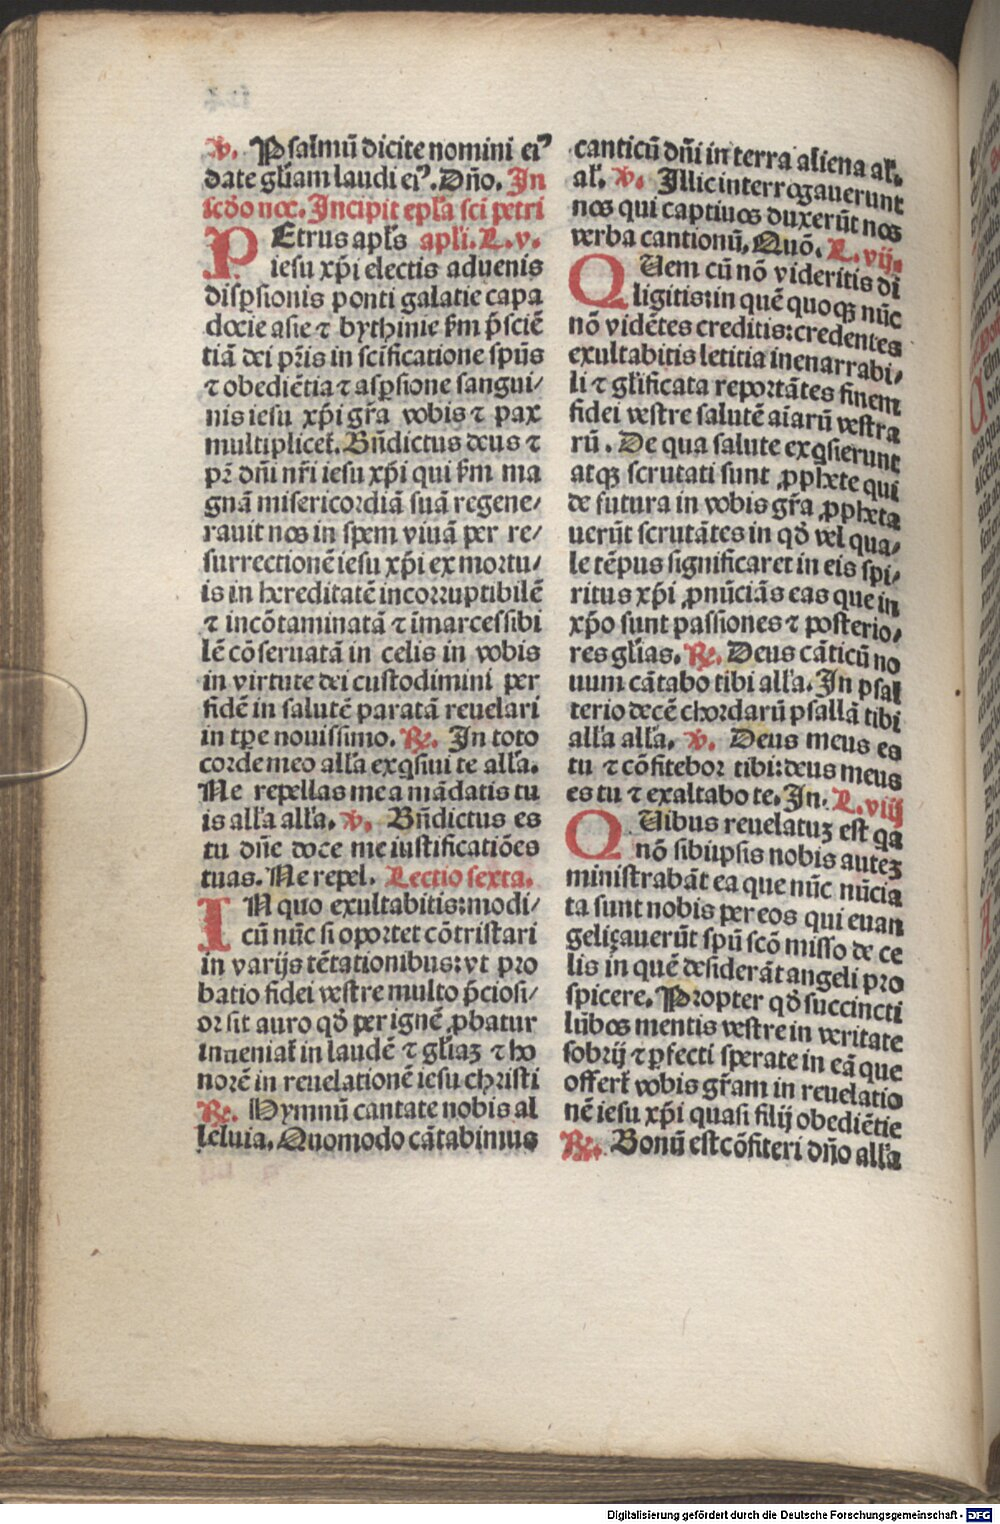 ℣. Psalmū dicite nomini eiꝰ
date gl̄iam laudi eiꝰ. Dn̄o. In
scd̄o noc. Incipit epl̄a sci petri
PEtrus apl̄s apl̄i. L. v.
iesu xp̄i electis aduenis
disꝑsionis ponti galatie capa
docie asie ⁊ bythinie ẜm p̄sciē
tiā dei pr̄is in scificatione spūs
⁊ obediētia ⁊ asꝑsione sangui/
nis iesu xp̄i gr̄a vobis ⁊ pax
multiplicet̄. Bn̄dictus deus ⁊
pr̄ dn̄i nr̄i iesu xp̄i qui ẜm ma
gnā misericordiā suā regene/
rauit nos in spem viuā per re/
surrectionē iesu xp̄i ex mortu/
is in hereditatē incorruptibilē
⁊ incōtaminatā ⁊ īmarcessibi
lē cōseruatā in celis in vobis
in virtute dei custodimini per
fidē in salutē paratā reuelari
in tꝑe nouissimo. ℟. In toto
corde meo all'a exꝗsiui te all'a.
Ne repellas me a mādatis tu
is all'a all'a. ℣. Bn̄dictus es
tu dn̄e doce me iustificatiōes
tuas. Ne repel. Lectio sexta.
IN quo exultabitis: modi/
cū nūc si oportet cōtristari
in varijs tētationibus: vt pro
batio fidei vestre multo p̄ciosi/
or sit auro qd̄ per ignē ꝓbatur
inueniat̄ in laudē ⁊ gl̄iaꝫ ⁊ ho
norē in reuelationē iesu christi
℟. Hymnū cantate nobis al
leluia. Quomodo cātabimus
canticū dn̄i in terra aliena al'.
al'. ℣. Illic interrogauerunt
nos qui captiuos duxerūt nos
verba cantionū. Quō. L. vij.
QUem cū nō videritis di
ligitis: in quē quoqꝫ nūc
nō vidētes creditis: credentes
exultabitis letitia inenarrabi/
li ⁊ gl̄ificata reportātes finem
fidei vestre salutē aīarū vestra
rū. De qua salute exꝗsierunt
atqꝫ scrutati sunt ꝓphete qui
de futura in vobis gr̄a ꝓpheta
uerūt scrutātes in qd̄ vel qua/
le tēpus significaret in eis spi/
ritus xp̄i ꝓnūciās eas que in
xp̄o sunt passiones ⁊ posterio/
res gl̄ias. ℟. Deus cāticū no
uum cātabo tibi all'a. In psal
terio decē chordarū psallā tibi
all'a all'a. ℣. Deus meus es
tu ⁊ cōfitebor tibi: deus meus
es tu ⁊ exaltabo te. In. L. viij
QUibus reuelatuꝫ est qa
nō sibiipsis nobis auteꝫ
ministrabāt ea que nūc nūcia
ta sunt nobis per eos qui euan
geliçauerūt spū scō misso de ce
lis in quē desiderāt angeli pro
spicere. Propter qd̄ succincti
lūbos mentis vestre in veritate
sobrij ⁊ ꝑfecti sperate in eā que
offert̄ vobis gr̄am in reuelatio
nē iesu xp̄i quasi filij obediētie
℟. Bonū est cōfiteri dn̄o all'a
Digitalisierung gefördert durch die Deutsche Forschungsgemeinschaft - DFG